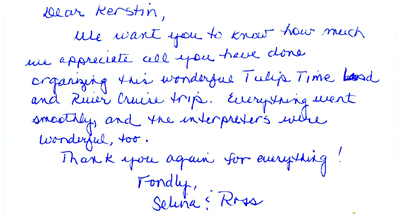 Dear Kerstin,
We want you to know how much
we appreciate all you have done
organizing this wonderful Tulip Time Land
and River Cruise trip. Everything went
smoothly, and the interpreters were
wonderful, too.
Thank you again for everything!
Fondly,
Selina & Ross